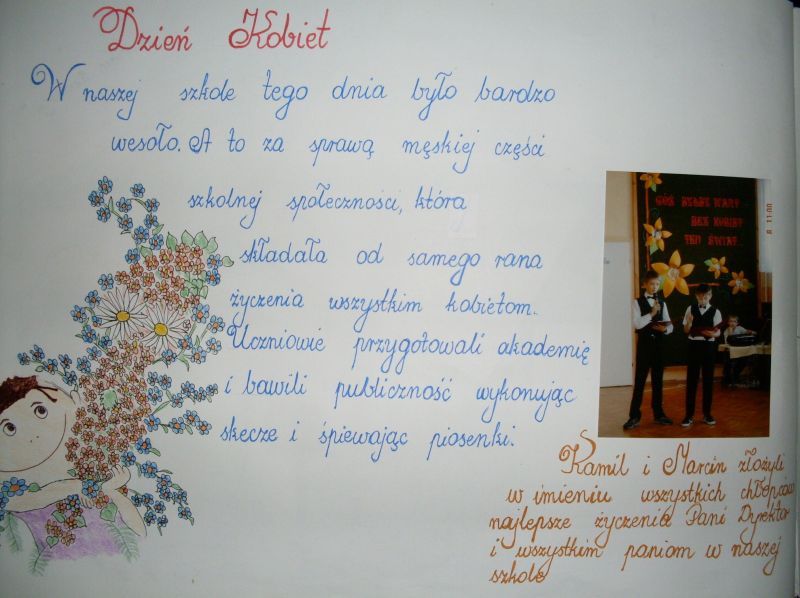 Dzień Kobiet
W naszej szkole tego dnia było bardzo
wesoło. A to za sprawą męskiej części
szkolnej społeczności, która
składała od samego rana
życzenia wszystkim kobietom.
Uczniowie przygotowali akademię
i bawili publiczność wykonując
skecze i śpiewając piosenki.
CÓŻ BYŁBY WART
BEZ KOBIET
TEN ŚWIAT...
Kamil i Marcin złożyli
w imieniu wszystkich chłopców
najlepsze życzenia Pani Dyrektor
i wszystkim paniom w naszej
szkole